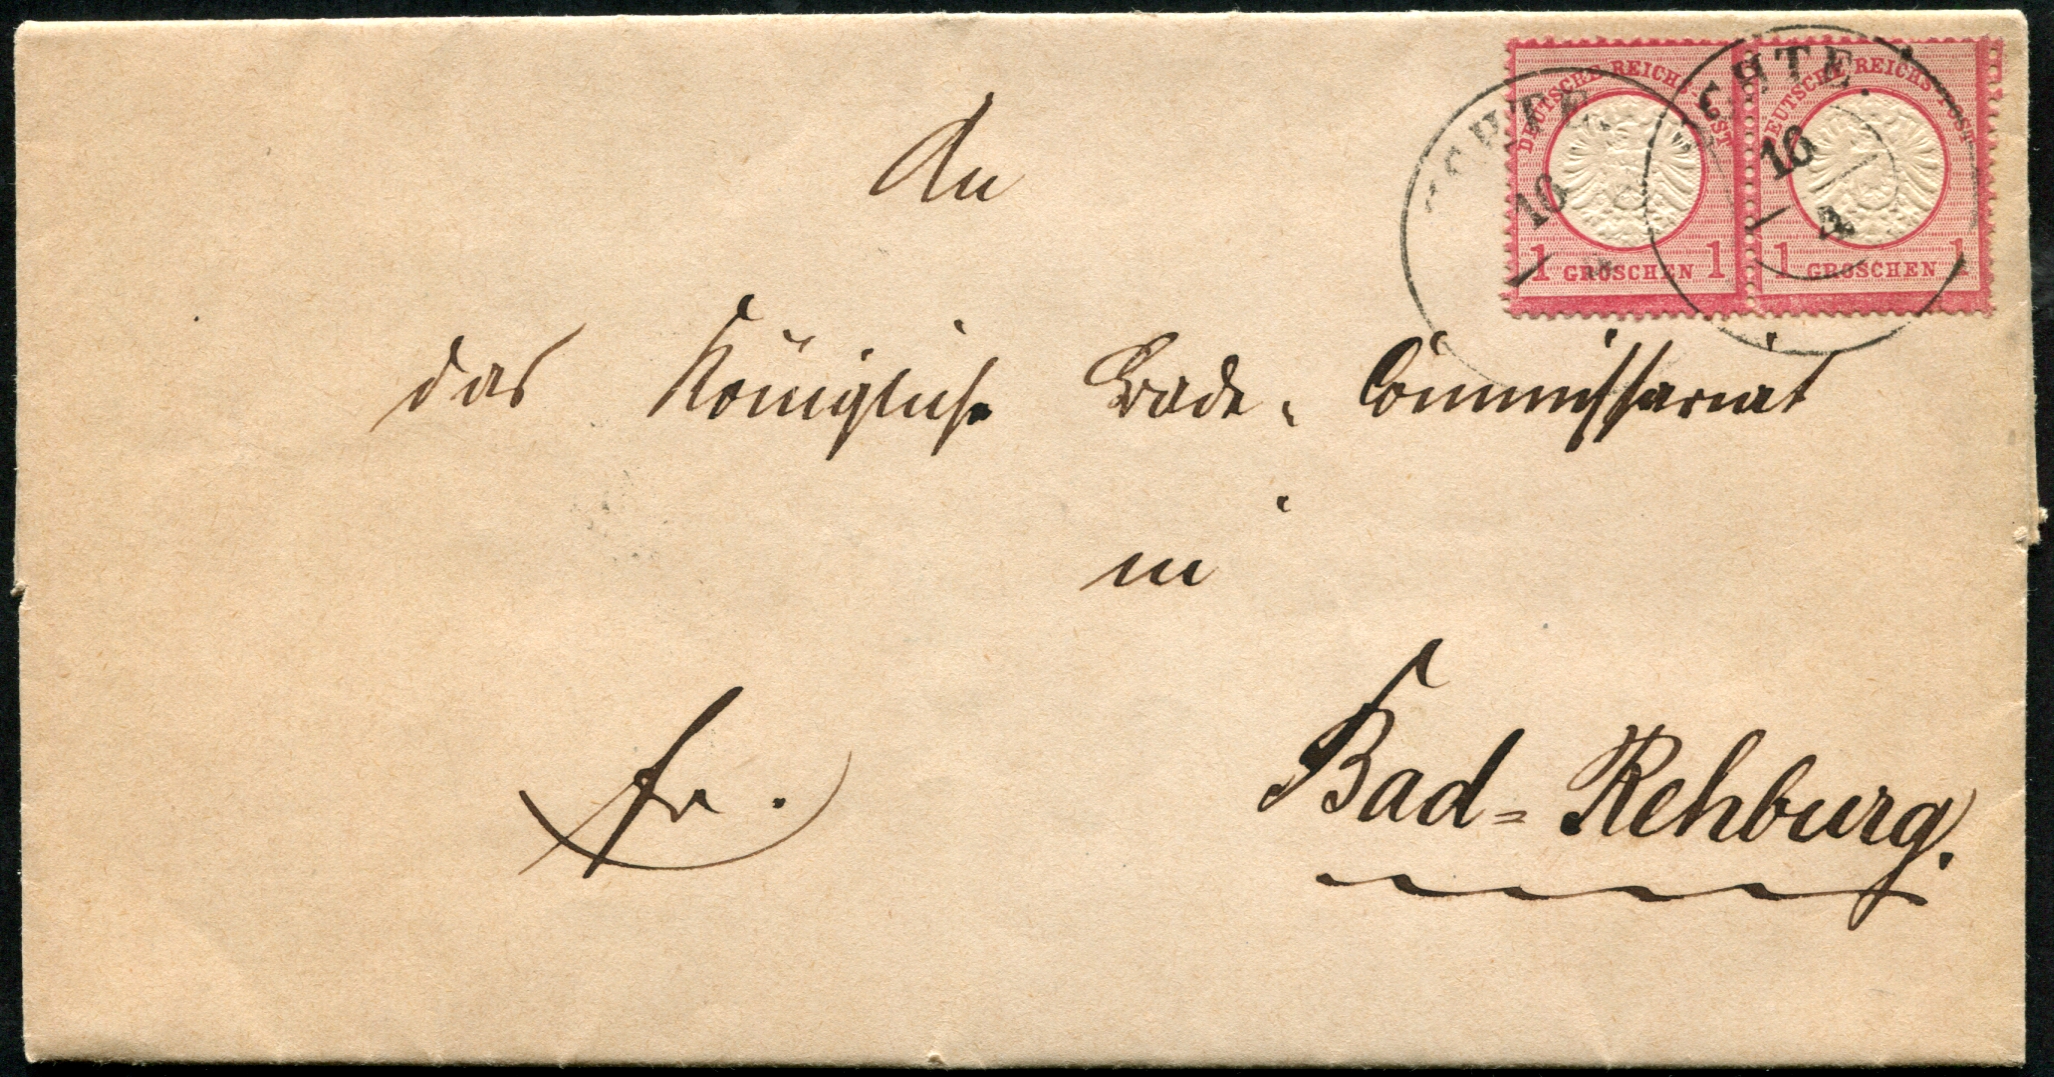 DEUTSCHE REICHS POST
1 GROSCHEN 1
DEUTSCHE REICHS POST
1 GROSCHEN 1
10
UCHTE
10
3
An
das Königliche Bade-Commissariat
in
fr.
Bad-Rehburg.